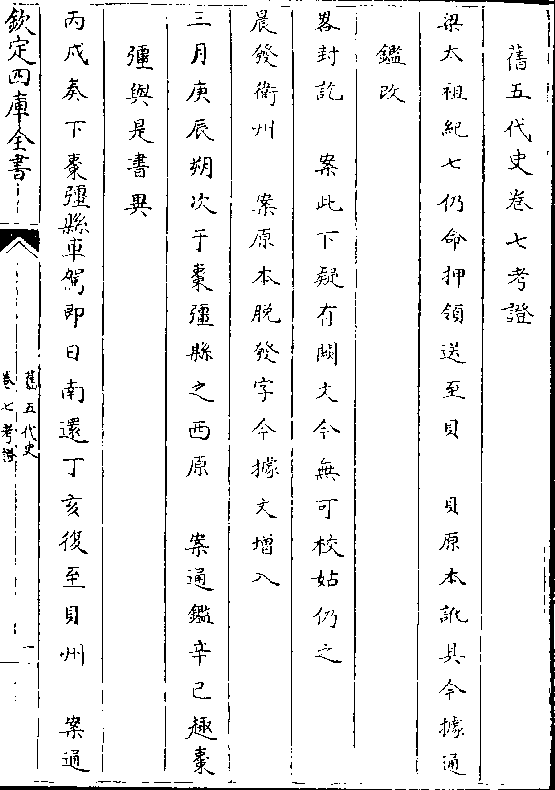 舊五代史卷七考證
梁太祖紀七仍命押領送至貝　貝原本訛具今據通
鑑改
畧封訖　案此下疑有闕文今無可校姑仍之
晨發衛州　案原本脫發字今據文增入
三月庚辰朔次于棗彊縣之西原　案通鑑辛巳趣棗
彊與是書異
丙戌奏下棗彊縣車駕即日南還丁亥復至貝州　案通
欽定四庫全書
舊五代史
卷七考證
一